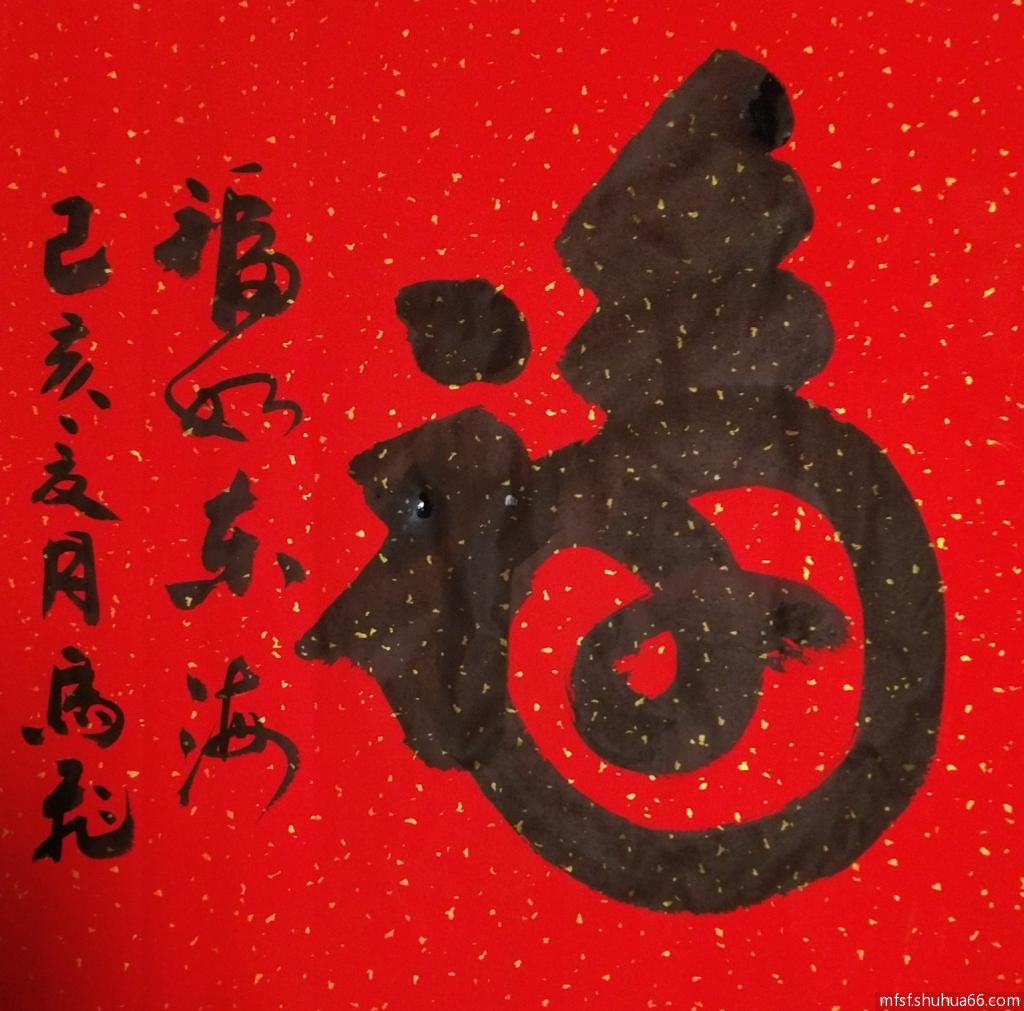 福
福如东海
己亥夏月馬飛
mfsf.shuhua66.com